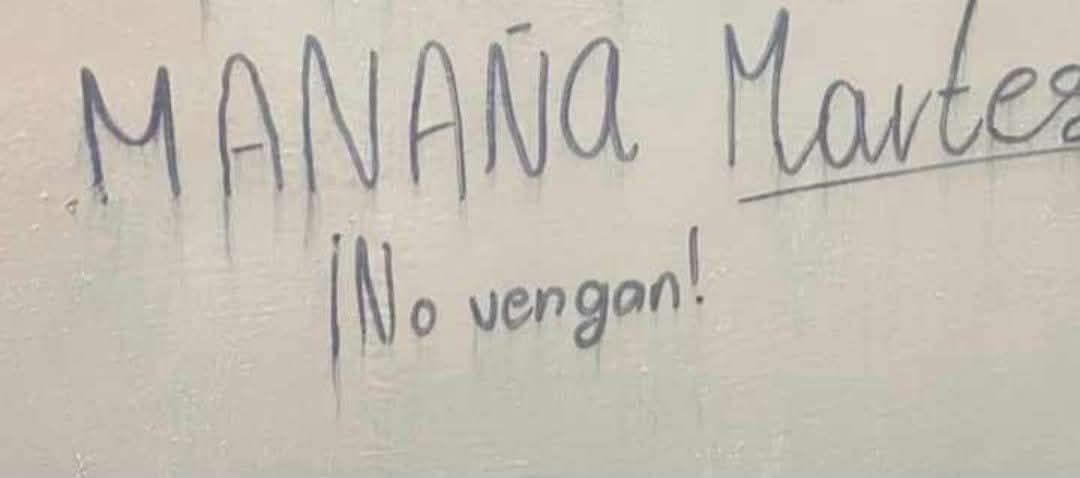 MAÑANA Martes
¡No vengan!